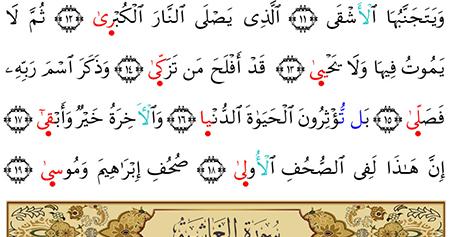 وَيَتَجَنَّبُهَا ٱلۡأَشۡقَى ﴿١١﴾ ٱلَّذِي يَصۡلَى ٱلنَّارَ ٱلۡكُبۡرىٰ ﴿١٢﴾ ثُمَّ لَا
يَمُوتُ فِيهَا وَلَا يَحۡيىٰ ﴿١٣﴾ قَدۡ أَفۡلَحَ مَن تَزَكّىٰ ﴿١٤﴾ وَذَكَرَ ٱسۡمَ رَبِّهِۦ
فَصَلّىٰ ﴿١٥﴾ بَل تُّؤۡثِرُونَ ٱلۡحَيَوٰةَ ٱلدُّنۡيا ﴿١٦﴾ وَٱلۡأَخِرَةُ خَيۡرٌ وَأَبۡقىٰٓ ﴿١٧﴾
إِنَّ هَٰذَا لَفِي ٱلصُّحُفِ ٱلۡأُولىٰ ﴿١٨﴾ صُحُفِ إِبۡرَاهِيمَ وَمُوسىٰ ﴿١٩﴾
سورة الغاشية